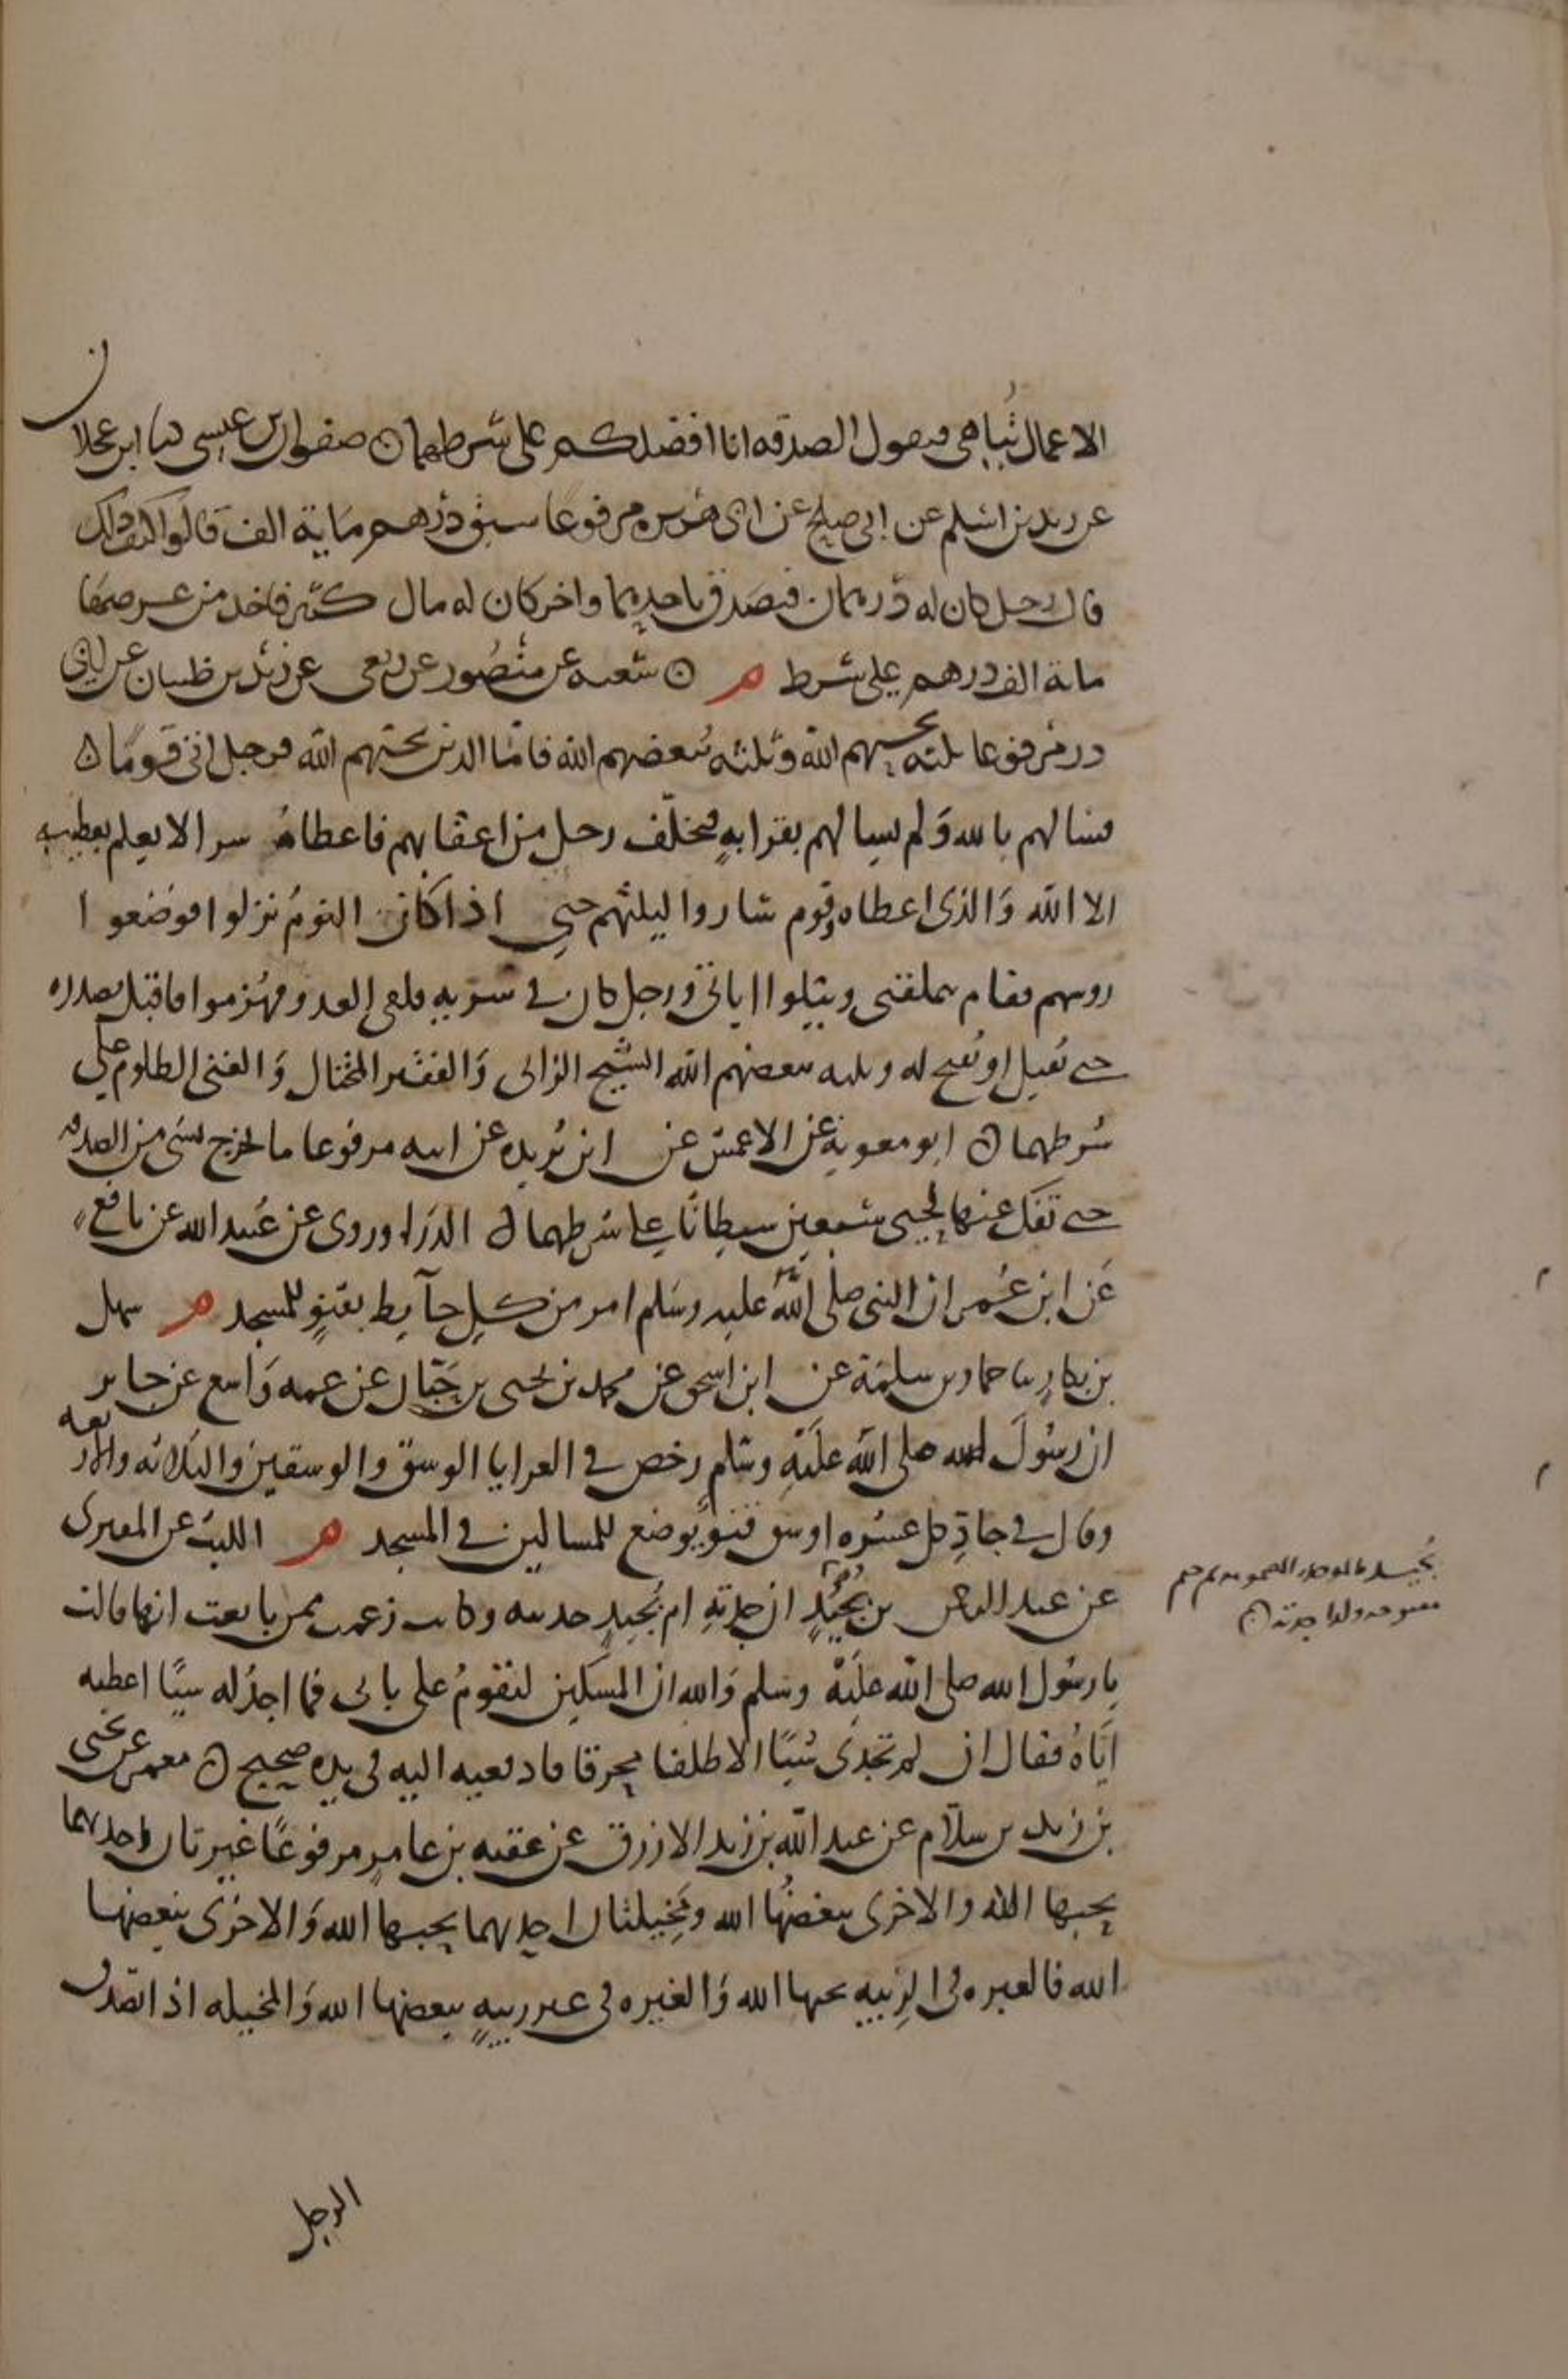 الاعمال تُباهى فيقول الصدقه انا افضلكم على شرطهما ۞ صفوان بن عيسى ثنا ابن عجلان
عن زيد بن اسلم عن ابى صلح عن ابى هريره مرفوعا سبق درهم ماية الف قالوا كيف ذلك
قال رجل كان له درهمان فتصدق باحدهما واخر كان له مال كثير فاخذ من عرضها
ماية الف درهم على شرط م ۞ شعبه عن منصور عن ربعى عن زيد بن ظبيان عن ابى
ذر مرفوعا ثلثه يحبهم الله وثلثه يبغضهم الله فاما الذين يحبهم الله فرجل اتى قومًا ن
فسالهم بالله وَلم يسالهم بقرابهٍ فتخلّف رجل من اعقابهم فاعطاهُ سرا لا يعلم بعطيته
الا الله وَالذى اعطاه وقوم ساروا ليلتهم حتى اذا كان النومُ نزلوا فوضعوا ا
روسهم فقام يتملقنى ويتلوا اياتى ورجل كان فى سريهٍ فلقى العدو فهُزموا فاقبل بصدره
حتى يُقتل او يُفتح له وثلثه يبغضهم الله الشيخ الزانى وَالفقير المختال وَالغنى الظلوم على
شرطهما ۞ ابو معوية عن الاعمش عن ابن بُريده عن ابيه مرفوعا ما يخرج شى من الصدقه
حتى تفك عنها لحيى سبعين شيطانًا على شرطهما ۞ الدرَاوردى عن عُبيد الله عن نافع
عَن ابن عُمر ان النبى صلى اللهُ عليه وسَلم امر من كل حآيط بقنوٍ للمسجد م سهل
بن بكارٍ ثنا حماد بن سلمَة عن ابن اسحق عن محمد بن يحيى بن حَبّان عن عمه وَاسع عن جابر
ان رسُولَ الله صلى الله علَيهِ وسَلم رخص فى العرايا الوسق والوسقين والثلاثه والاربعه
وقال فى جاذِ كل عشره اوسق قنوٌ يوضع للمساكين فى المسجد م الليث عن المقبرى
عن عبد الرحمن بن بُجَيدٍ ان جدتهِ ام بُجَيدٍ حدثته وكانت زعمت ممن بايعت انها قالت
بُجَيد
جدته ۞
يا رسُول الله صلى الله علَيهْ وسَلم وَالله ان المسكين ليقومُ على بابى فما اجدُ له شيًا اعطيه
ايَّاهُ فقال ان لم تجدى شيًا الا ظلفا محرقا فادفعيه اليه فى يده صحيح ۞ معمر عن يحيى
بن زيد بن سلاّم عن عبد الله بن زيد الازرق عن عقبه بن عامر مرفوعًا غيرتان احدهما
يحبها الله والاخرى يبغضُها الله ومَخِيلتان احدهما يحبها الله وَالاخرَى يبغضها
الله فالغيره فى الرِيبه يحبها الله وَالغيره فى غير ريبهٍ يبغضها الله وَالمخيله اذا تصدق
الرجل